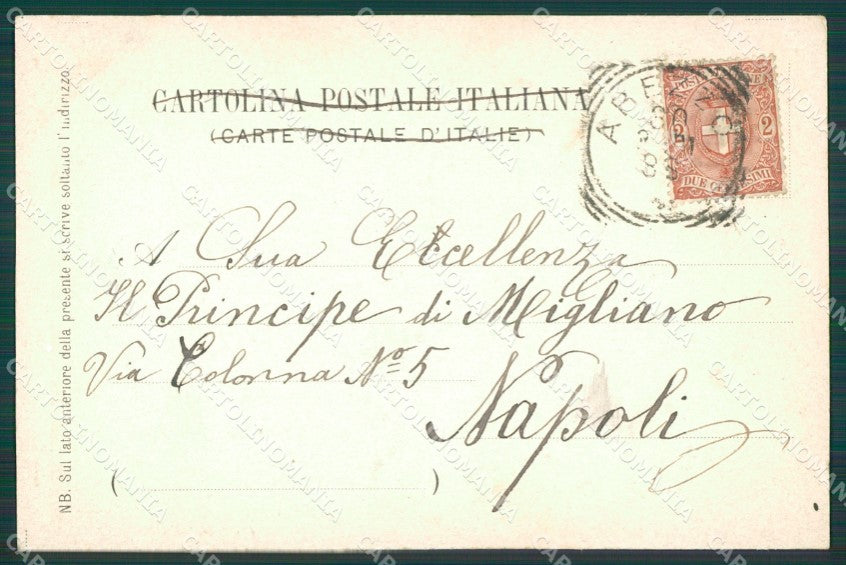 CARTOLINA POSTALE ITALIANA
(CARTE POSTALE D'ITALIE)
2
DUE
A Sua Eccellenza
Il Principe di Migliano
Via Colonna Nº 5
Napoli
( )
NB. Sul lato anteriore della presente si scrive soltanto l'indirizzo.
CARTOLINOMANIA